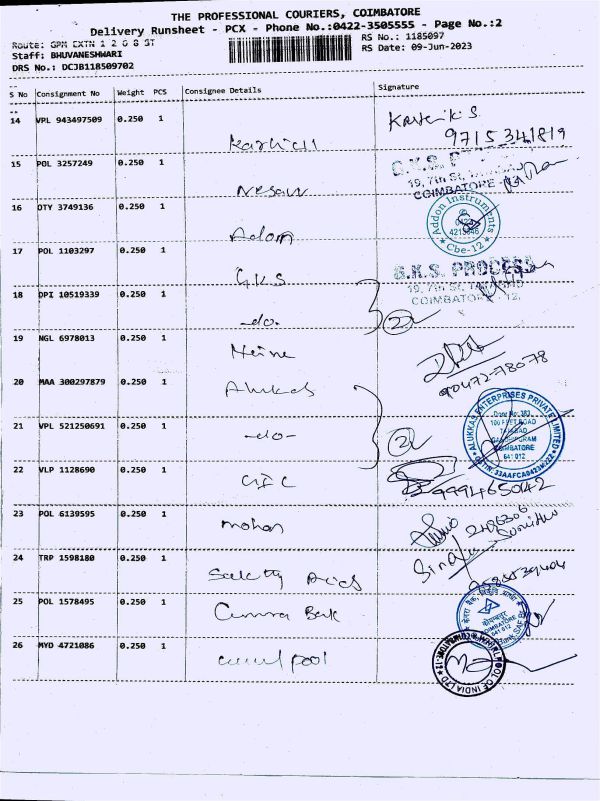 THE PROFESSIONAL COURIERS, COIMBATORE
Delivery Runsheet - PCX - Phone No.:0422-3505555 - Page No.:2
Route: GPM EXTN 1 2 6 8 ST
RS No.: 1185097
Staff: BHUVANESHWARI
RS Date: 09-Jun-2023
DRS No.: DCJB118509702
S No Consignment No Weight PCS Consignee Details Signature
14 VPL 943497509 0.250 1 Karthik S
9715341819
15 POL 3257249 0.250 1 Nesan
G.K.S. P
19, 7th St,
COIMBATORE
16 OTY 3749136 0.250 1 Adon
Addon Instruments
Cbe-12
17 POL 1103297 0.250 1 G.K.S
G.K.S. PROCESS
19, 7th St,
COIMBATO 12.
18 DPI 10519339 0.250 1 -do- 2
19 NGL 6978013 0.250 1
90472-78078
20 MAA 300297879 0.250 1 Alukas
21 VPL 521250691 0.250 1 -do- 2
ALUKKAS ENTERPRISES PRIVATE LIMITED
Door No: 383
100 FEET ROAD
TATABAD
GANDHIPURAM
COIMBATORE
641 012
22 VLP 1128690 0.250 1
9994650142
23 POL 6139595 0.250 1 mohan
24 TRP 1598180 0.250 1
25 POL 1578495 0.250 1 Canara Bank
COIMBATORE
641 012
26 MYD 4721086 0.250 1
OF INDIA LTD